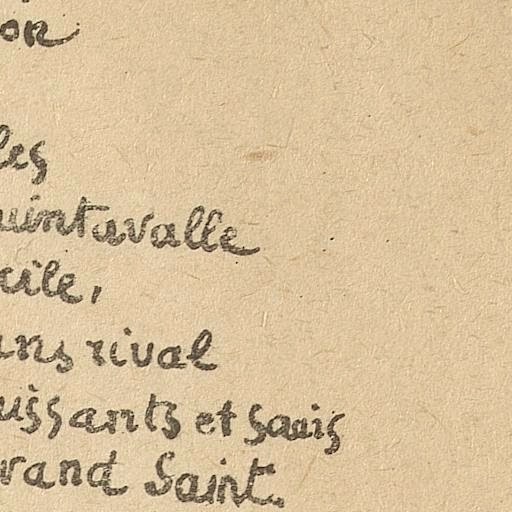 on
les
uintavalle
cile,
ans rival
uissants et
rand Saint.